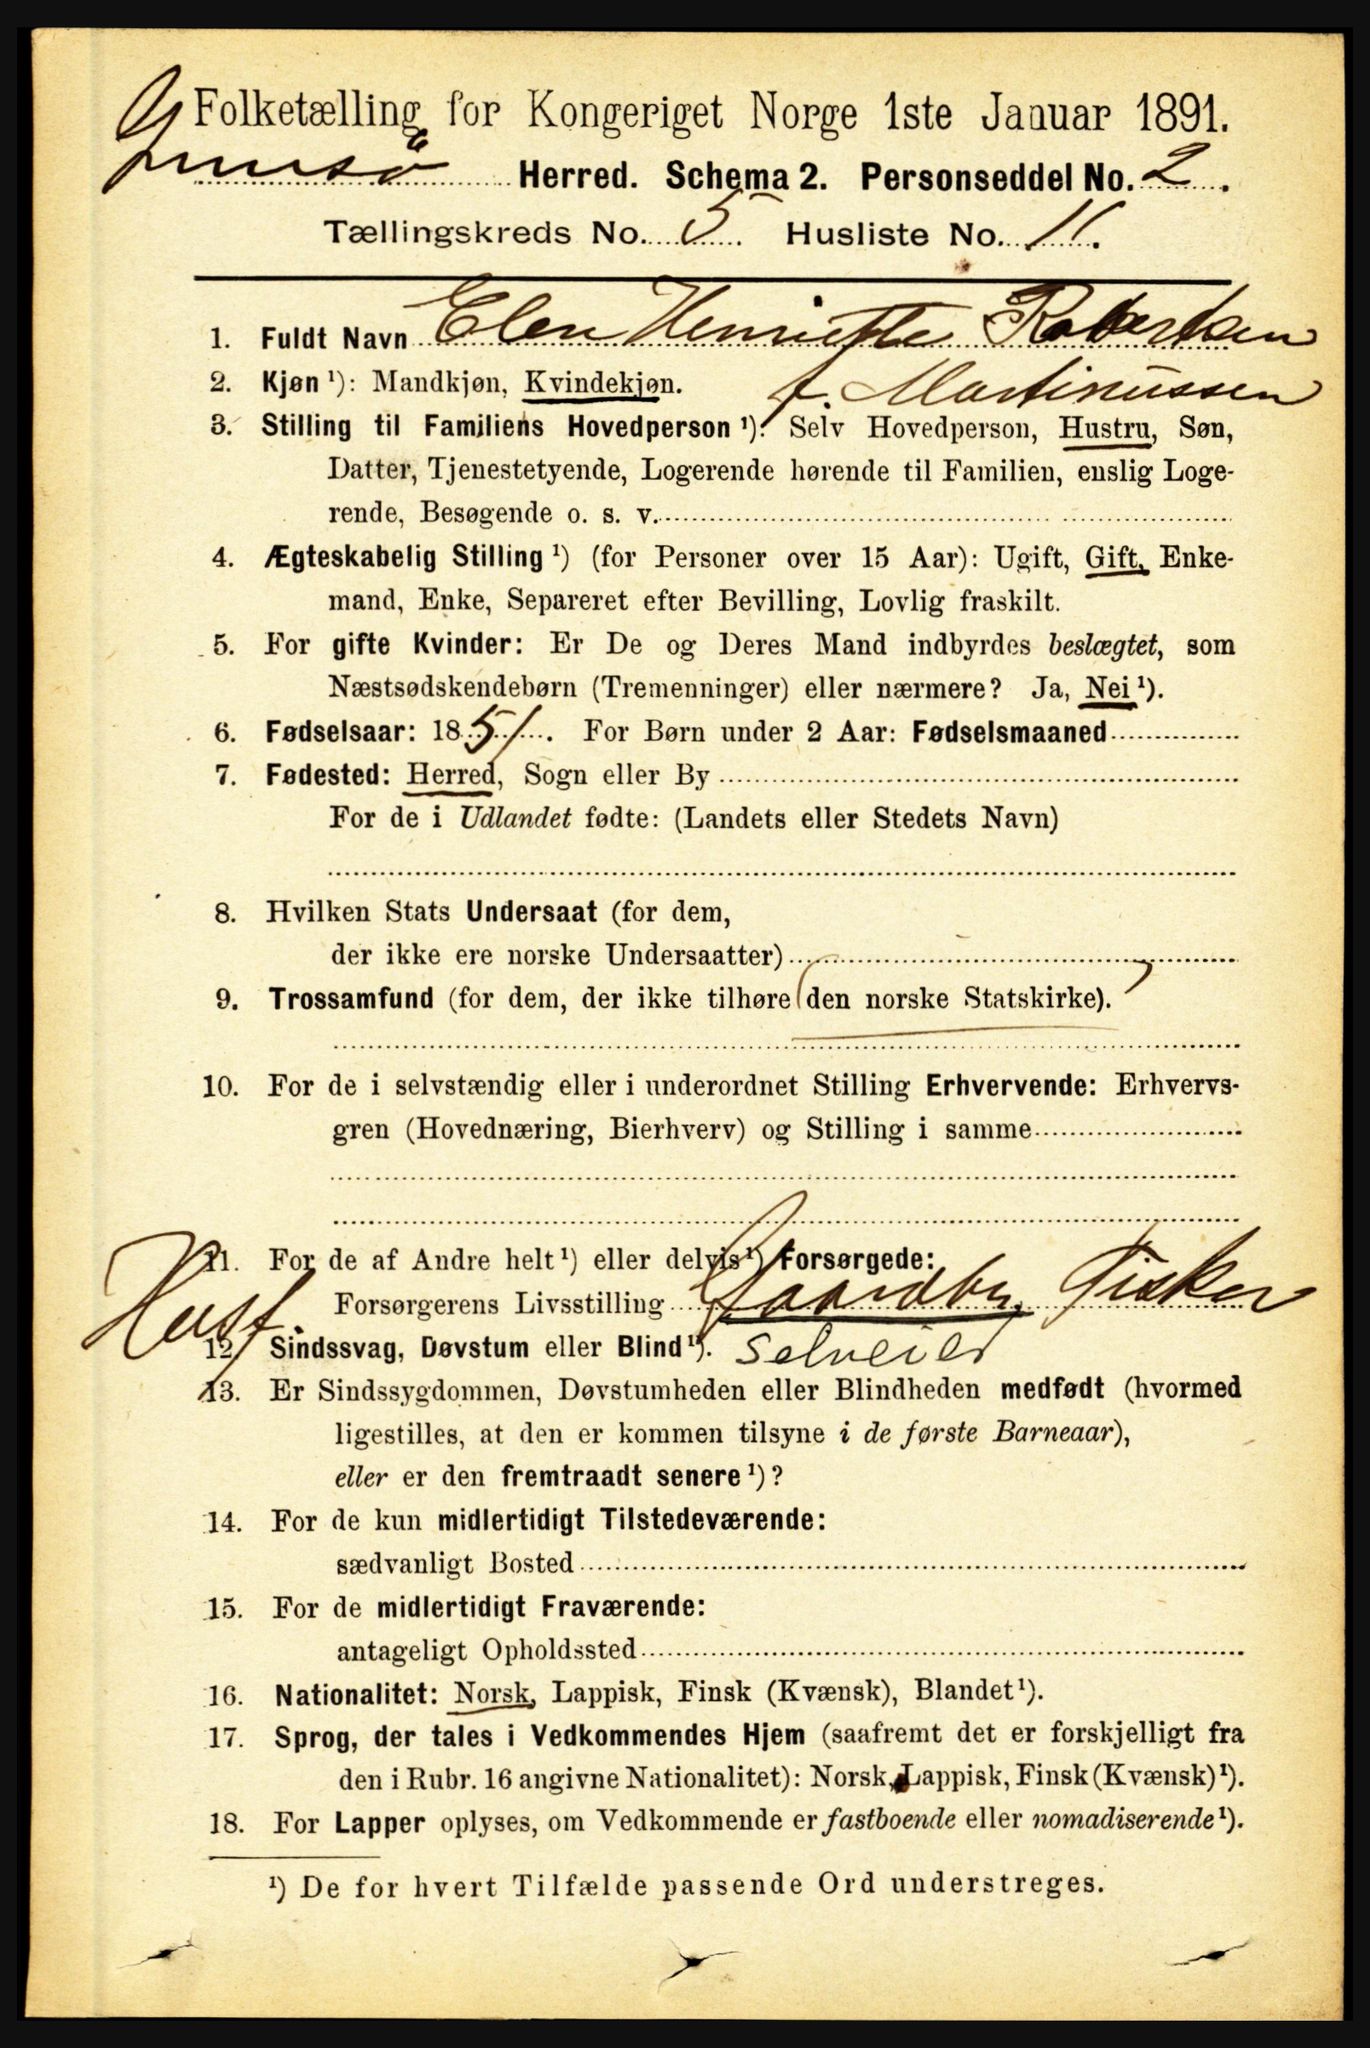 Folketælling for Kongeriget Norge 1ste Januar 1891.
Gimsø Herred. Schema 2. Personseddel No. 2.
Tællingskreds No. 5. Husliste No. 11.
1. Fuldt Navn Elen Henriette Robertsen
f. Martinussen
2. Kjøn ¹): Mandkjøn, Kvindekjøn.
3. Stilling til Familiens Hovedperson ¹): Selv Hovedperson, Hustru, Søn,
Datter, Tjenestetyende, Logerende hørende til Familien, enslig Loge-
rende, Besøgende o. s. v.
4. Ægteskabelig Stilling ¹) (for Personer over 15 Aar): Ugift, Gift, Enke-
mand, Enke, Separeret efter Bevilling, Lovlig fraskilt.
5. For gifte Kvinder: Er De og Deres Mand indbyrdes beslægtet, som
Næstsødskendebørn (Tremenninger) eller nærmere? Ja, Nei ¹).
6. Fødselsaar: 1851. For Børn under 2 Aar: Fødselsmaaned
7. Fødested: Herred, Sogn eller By
For de i Udlandet fødte: (Landets eller Stedets Navn)
8. Hvilken Stats Undersaat (for dem,
der ikke ere norske Undersaatter)
9. Trossamfund (for dem, der ikke tilhøre den norske Statskirke).
10. For de i selvstændig eller i underordnet Stilling Erhvervende: Erhvervs-
gren (Hovednæring, Bierhverv) og Stilling i samme
11. For de af Andre helt ¹) eller delvis ¹) Forsørgede:
Hust. Forsørgerens Livsstilling Gaardbr. Fisker
12. Sindssvag, Døvstum eller Blind ¹). Selveier
13. Er Sindssygdommen, Døvstumheden eller Blindheden medfødt (hvormed
ligestilles, at den er kommen tilsyne i de første Barneaar),
eller er den fremtraadt senere ¹)?
14. For de kun midlertidigt Tilstedeværende:
sædvanligt Bosted
15. For de midlertidigt Fraværende:
antageligt Opholdssted
16. Nationalitet: Norsk, Lappisk, Finsk (Kvænsk), Blandet ¹).
17. Sprog, der tales i Vedkommendes Hjem (saafremt det er forskjelligt fra
den i Rubr. 16 angivne Nationalitet): Norsk, Lappisk, Finsk (Kvænsk) ¹).
18. For Lapper oplyses, om Vedkommende er fastboende eller nomadiserende ¹).
¹) De for hvert Tilfælde passende Ord understreges.